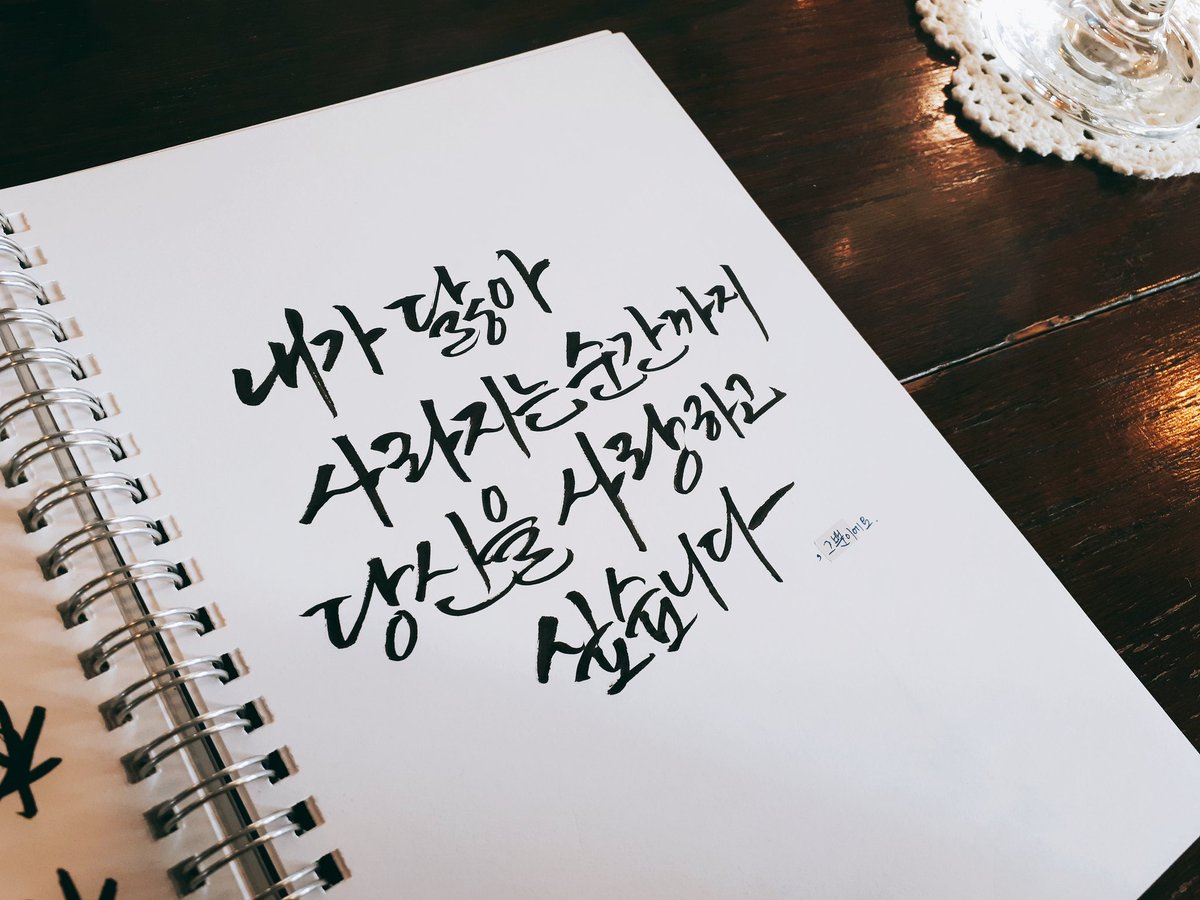 내가 닳아
사라지는 순간까지
당신을 사랑하고
싶습니다